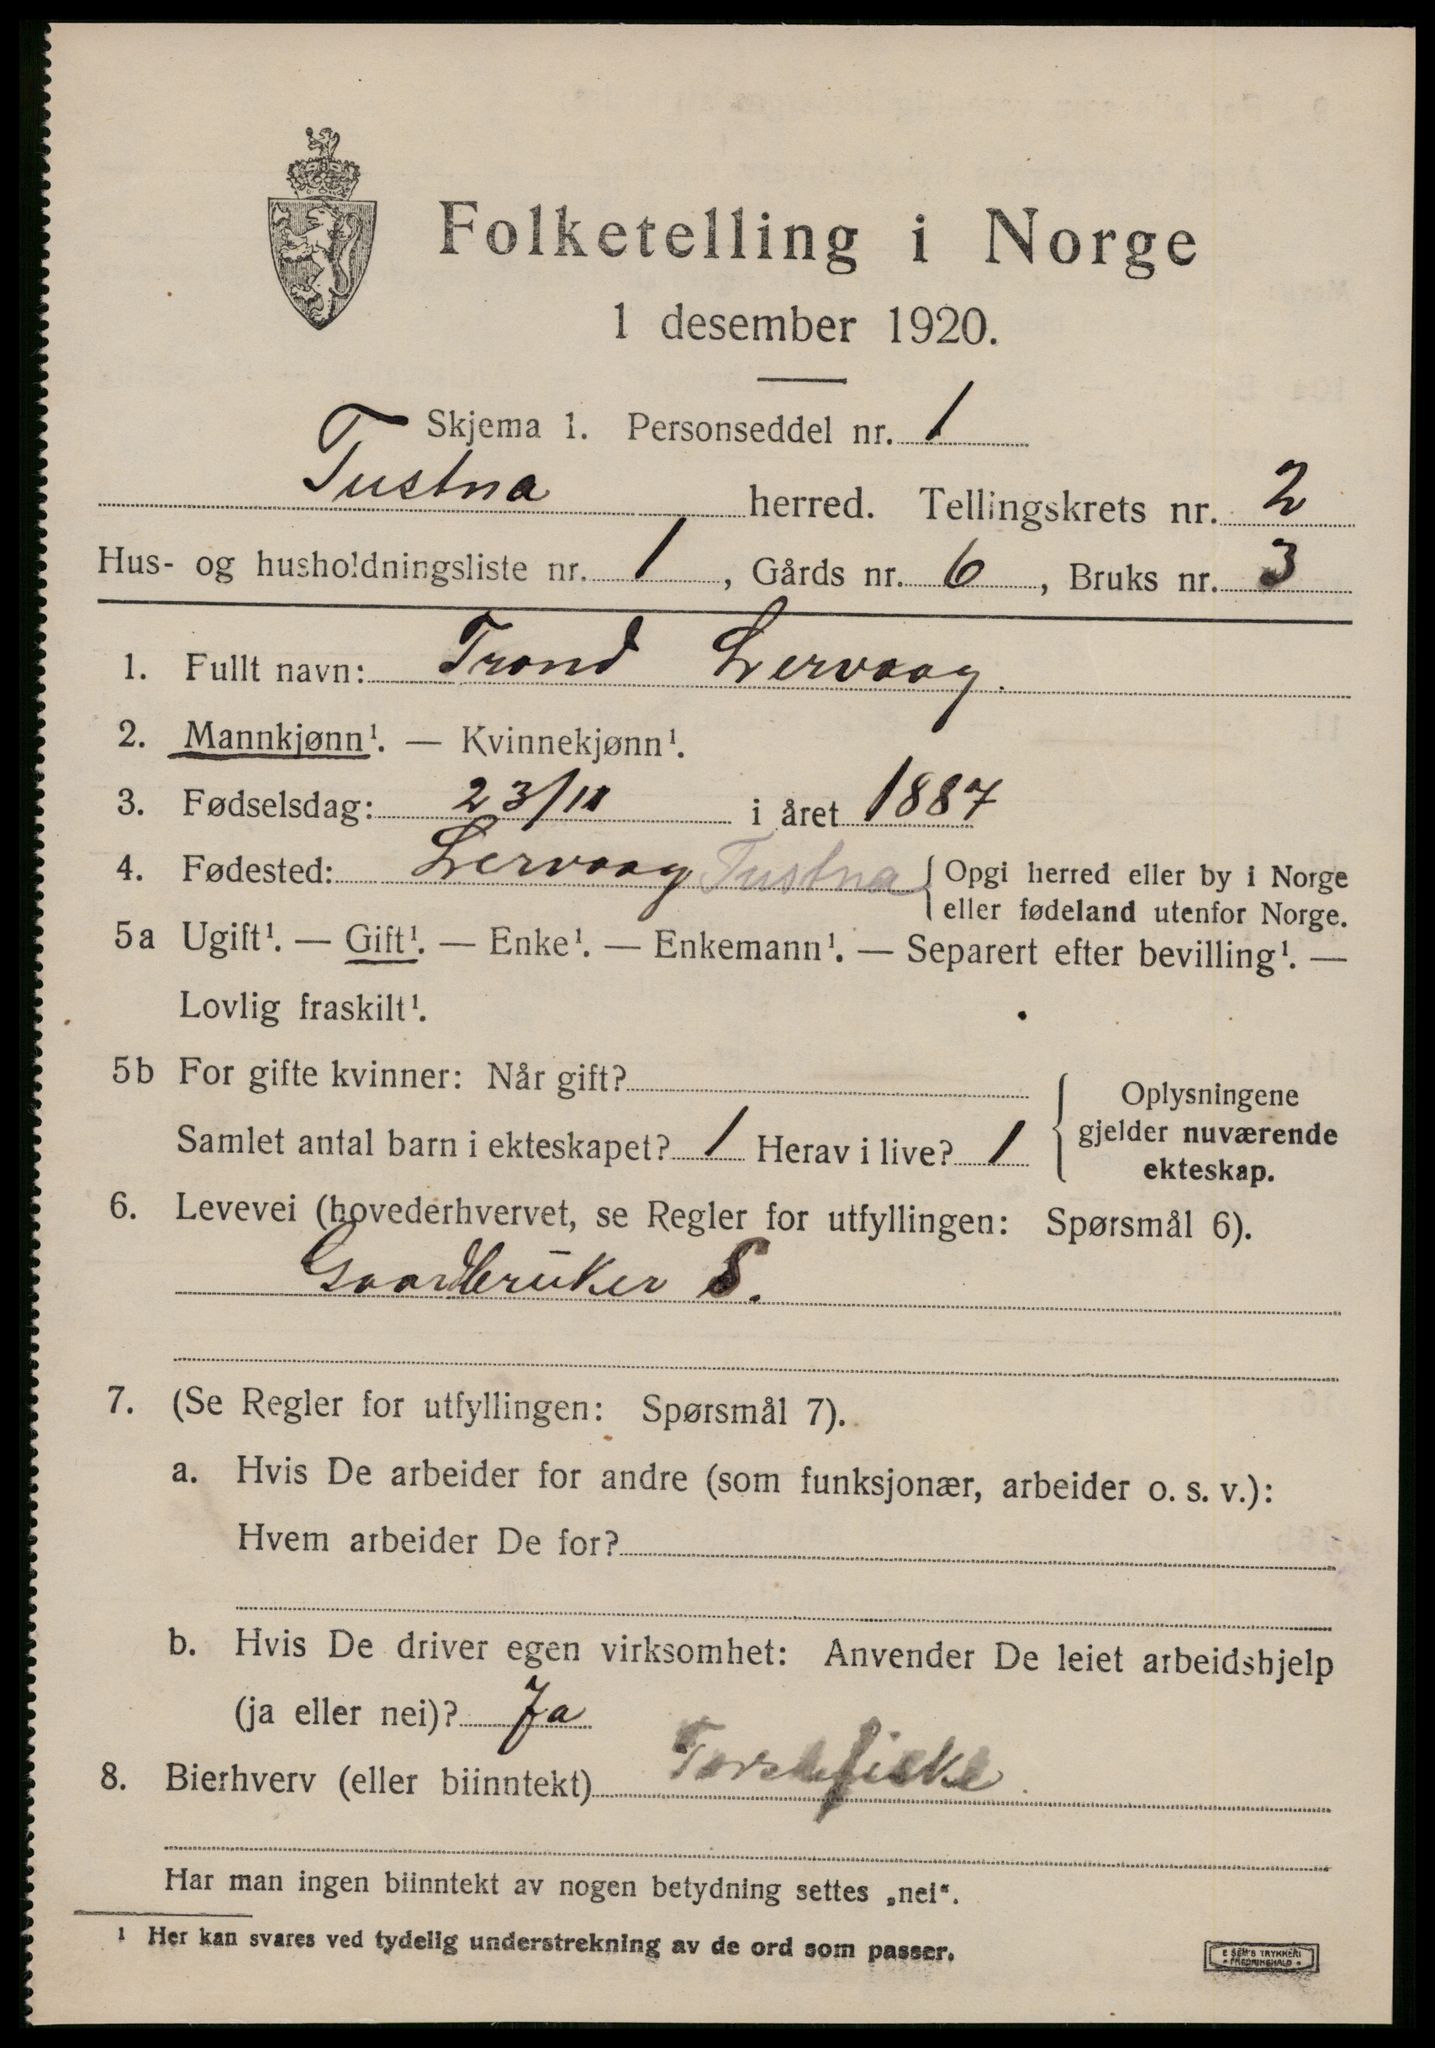 Folketelling i Norge
1 desember 1920.
Skjema 1. Personseddel nr. 1
Tustna herred. Tellingskrets nr. 2
Hus- og husholdningsliste nr. 1, Gårds nr. 6, Bruks nr. 3
1. Fullt navn: Trond Lervaag.
2. Mannkjønn¹. — Kvinnekjønn¹.
3. Fødselsdag: 23/11 i året 1887
4. Fødested: Lervaag Tustna { Opgi herred eller by i Norge
eller fødeland utenfor Norge.
5a Ugift¹. — Gift¹. — Enke¹. — Enkemann¹. — Separert efter bevilling¹. —
Lovlig fraskilt¹.
5b For gifte kvinner: Når gift?
Samlet antal barn i ekteskapet? 1 Herav i live? 1
Oplysningene
gjelder nuværende
ekteskap.
6. Levevei (hovederhvervet, se Regler for utfyllingen: Spørsmål 6).
Gaardbruker S.
7. (Se Regler for utfyllingen: Spørsmål 7).
a. Hvis De arbeider for andre (som funksjonær, arbeider o. s. v.):
Hvem arbeider De for?
b. Hvis De driver egen virksomhet: Anvender De leiet arbeidshjelp
(ja eller nei)? Ja
8. Bierhverv (eller biinntekt) Torskefiske
Har man ingen biinntekt av nogen betydning settes „nei“.
¹ Her kan svares ved tydelig understrekning av de ord som passer.
E SEM'S TRYKKERI
FREDRIKSHALD